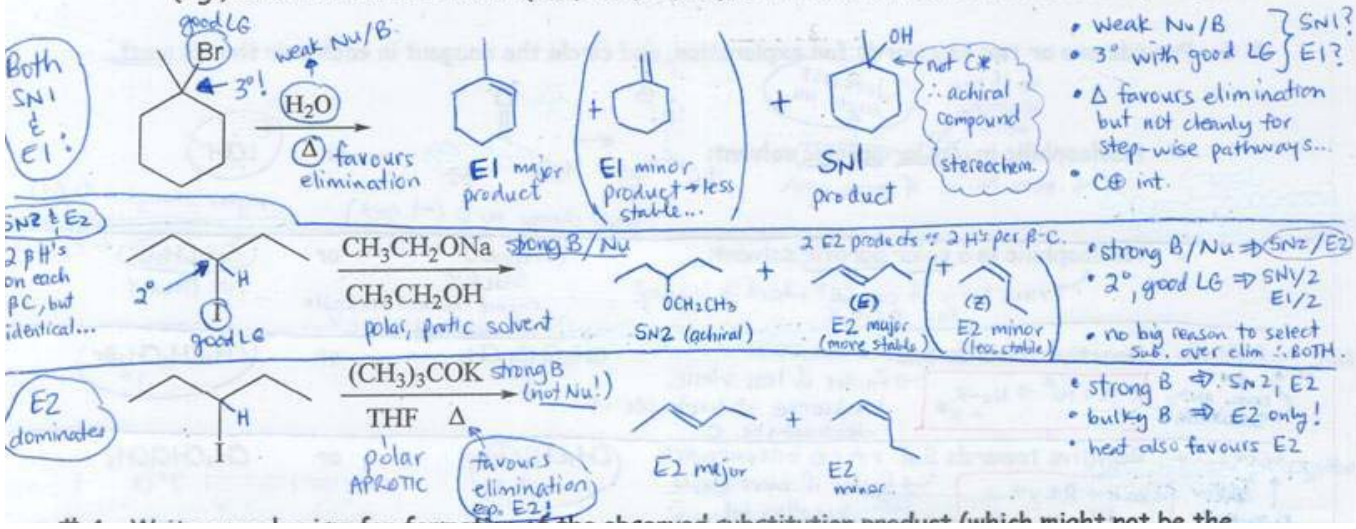 good LG
Both
SN1
&
E1!
Br
3°!
weak Nu/B
H₂O
Δ favours
elimination
E1 major
product
+
E1 minor
product → less
stable...
+
OH
SN1
product
not C*
∴ achiral
compound
stereochem.
• weak Nu/B } SN1?
• 3° with good LG } E1?
• Δ favours elimination
but not cleanly for
step-wise pathways...
• C⊕ int.
SN2 & E2
2 βH's
on each
βC, but
identical...
2°
H
I
good LG
CH₃CH₂ONa strong B/Nu
CH₃CH₂OH
polar, protic solvent
OCH₂CH₃
SN2 (achiral)
2 E2 products ∵ 2 H's per β-C.
+
(E)
E2 major
(more stable)
+
(Z)
E2 minor
(less stable)
• strong B/Nu ⇒ SN2/E2
• 2°, good LG ⇒ SN1/2
E1/2
• no big reason to select
sub. over elim ∴ BOTH.
E2
dominates
H
I
(CH₃)₃COK strong B
(not Nu!)
THF Δ
polar
APROTIC
favours
elimination
esp. E2!
E2 major
+
E2
minor.
• strong B ⇒ SN2, E2
• bulky B ⇒ E2 only!
• heat also favours E2